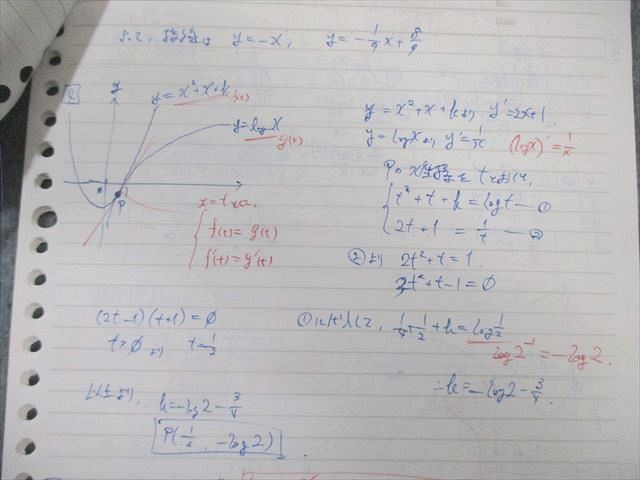 No.
Date
よって, 接線は y = -x, y = -1/9 x + 8/9
8
y
y = x² + x + k
f(x)
y = log x
g(x)
o
P
x = t とすると
{ f(t) = g(t)
f'(t) = g'(t)
y = x² + x + k より y' = 2x + 1.
y = log x より y' = 1/x (log x)' = 1/x
Pの x座標を t とおくと,
{ t² + t + k = log t — ①
2t + 1 = 1/t — ②
②より 2t² + t = 1.
2t² + t - 1 = 0
(2t - 1)(t + 1) = 0
t > 0 より t = 1/2
①に代入して, 1/4 + 1/2 + k = log 1/2
log 2⁻¹ = -log 2.
∴ k = -log 2 - 3/4.
以上より, k = -log 2 - 3/4
P(1/2, -log 2)